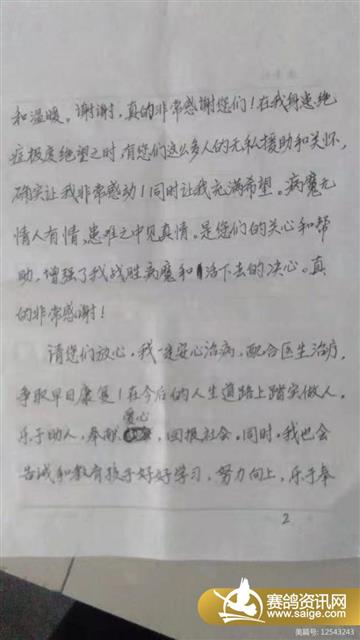 和温暖。谢谢,真的非常感谢您们!在我身患绝
症极度绝望之时,有您们这么多人的无私援助和关怀,
确实让我非常感动!同时让我充满希望。病魔无
情人有情,患难之中见真情。是您们的关心和帮
助,增强了我战胜病魔和活下去的决心。真
的非常感谢!
请您们放心,我一定安心治病,配合医生治疗,
争取早日康复!在今后的人生道路上踏实做人。
爱心
乐于助人,奉献,回报社会。同时,我也会
告诫和教育孩子好好学习,努力向上,乐于奉
2
赛鸽资讯网
www.saige.com
美篇号:12543243